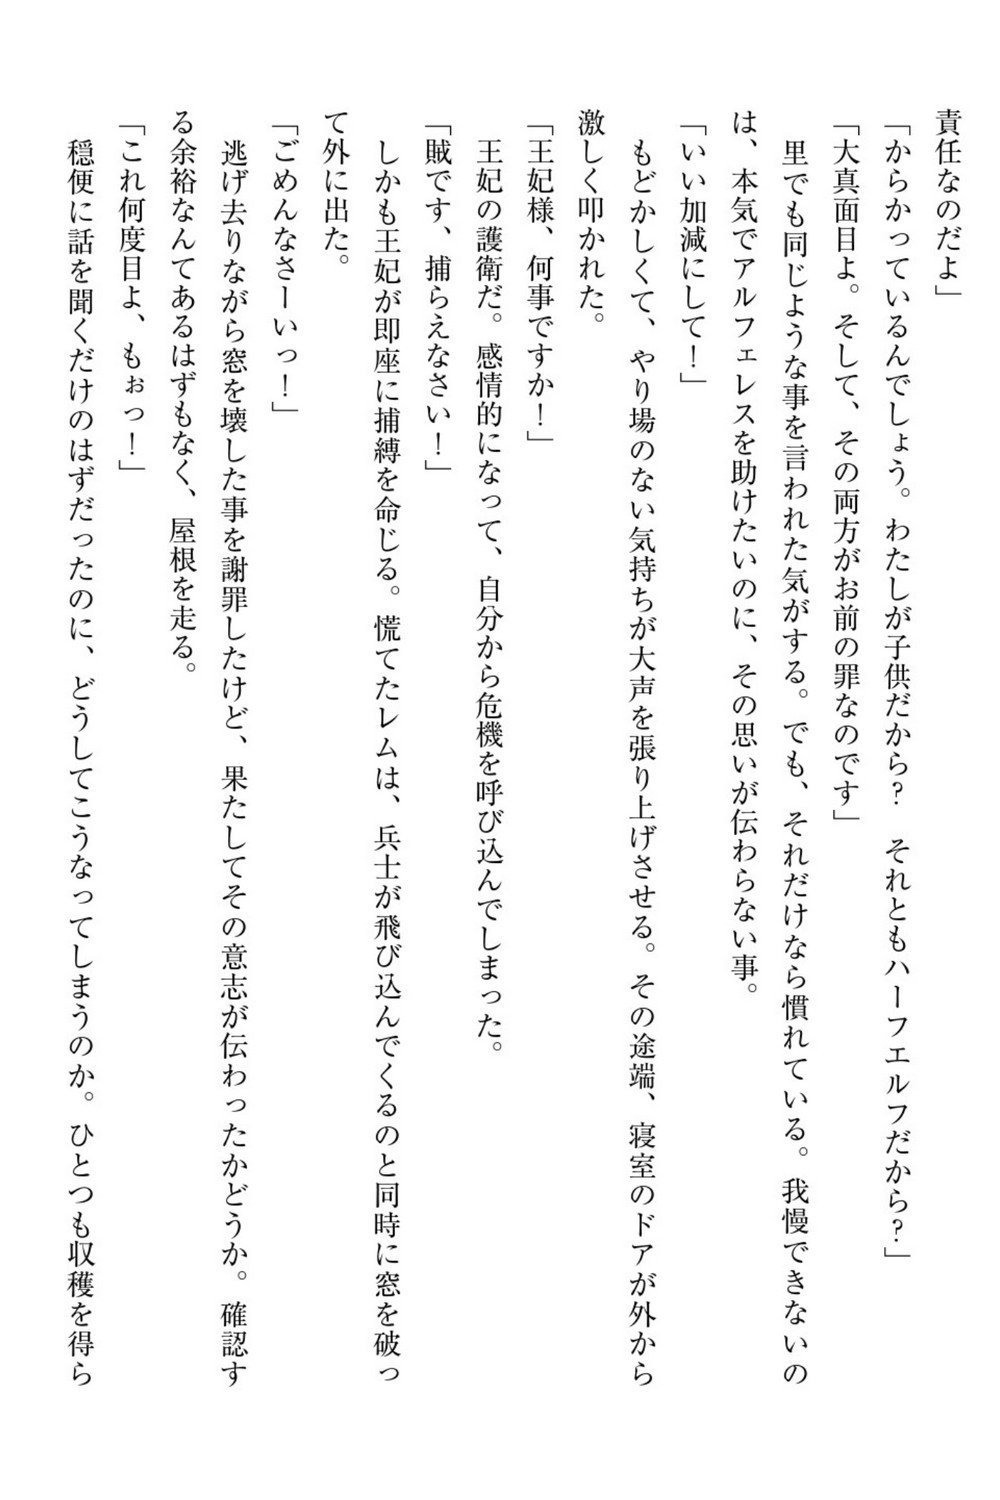 責任なのだよ」
「からかっているんでしょう。わたしが子供だから？　それともハーフエルフだから？」
「大真面目よ。そして、その両方がお前の罪なのです」
　里でも同じような事を言われた気がする。でも、それだけなら慣れている。我慢できないの
は、本気でアルフェレスを助けたいのに、その思いが伝わらない事。
「いい加減にして！」
　もどかしくて、やり場のない気持ちが大声を張り上げさせる。その途端、寝室のドアが外から
激しく叩かれた。
「王妃様、何事ですか！」
　王妃の護衛だ。感情的になって、自分から危機を呼び込んでしまった。
「賊です、捕らえなさい！」
　しかも王妃が即座に捕縛を命じる。慌てたレムは、兵士が飛び込んでくるのと同時に窓を破っ
て外に出た。
「ごめんなさーいっ！」
　逃げ去りながら窓を壊した事を謝罪したけど、果たしてその意志が伝わったかどうか。確認す
る余裕なんてあるはずもなく、屋根を走る。
「これ何度目よ、もぉっ！」
　穏便に話を聞くだけのはずだったのに、どうしてこうなってしまうのか。ひとつも収穫を得ら